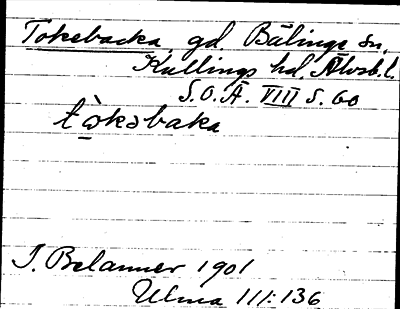 Tokebacka, gd Bälinge sn,
Kullings hd. Älvsb. l.
S.O.Ä. VIII S. 60
tòkəbaka
J. Belanner 1901
Ulma 111:136